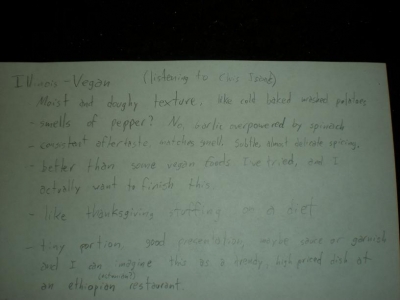 Illinois - Vegan (listening to Chris Isaak)
Moist and doughy texture, like cold baked mashed potatoes
- smells of pepper? No, garlic overpowered by spinach
- constant aftertaste matches smell. Subtle, almost delicate spicing.
- better than some vegan foods I've tried, and I
actually want to finish this.
- like thanksgiving stuffing on a diet
- tiny portion, good presentation, maybe sauce or garnish
and I can imagine this as a trendy, high priced dish at
an ethiopian restaurant.